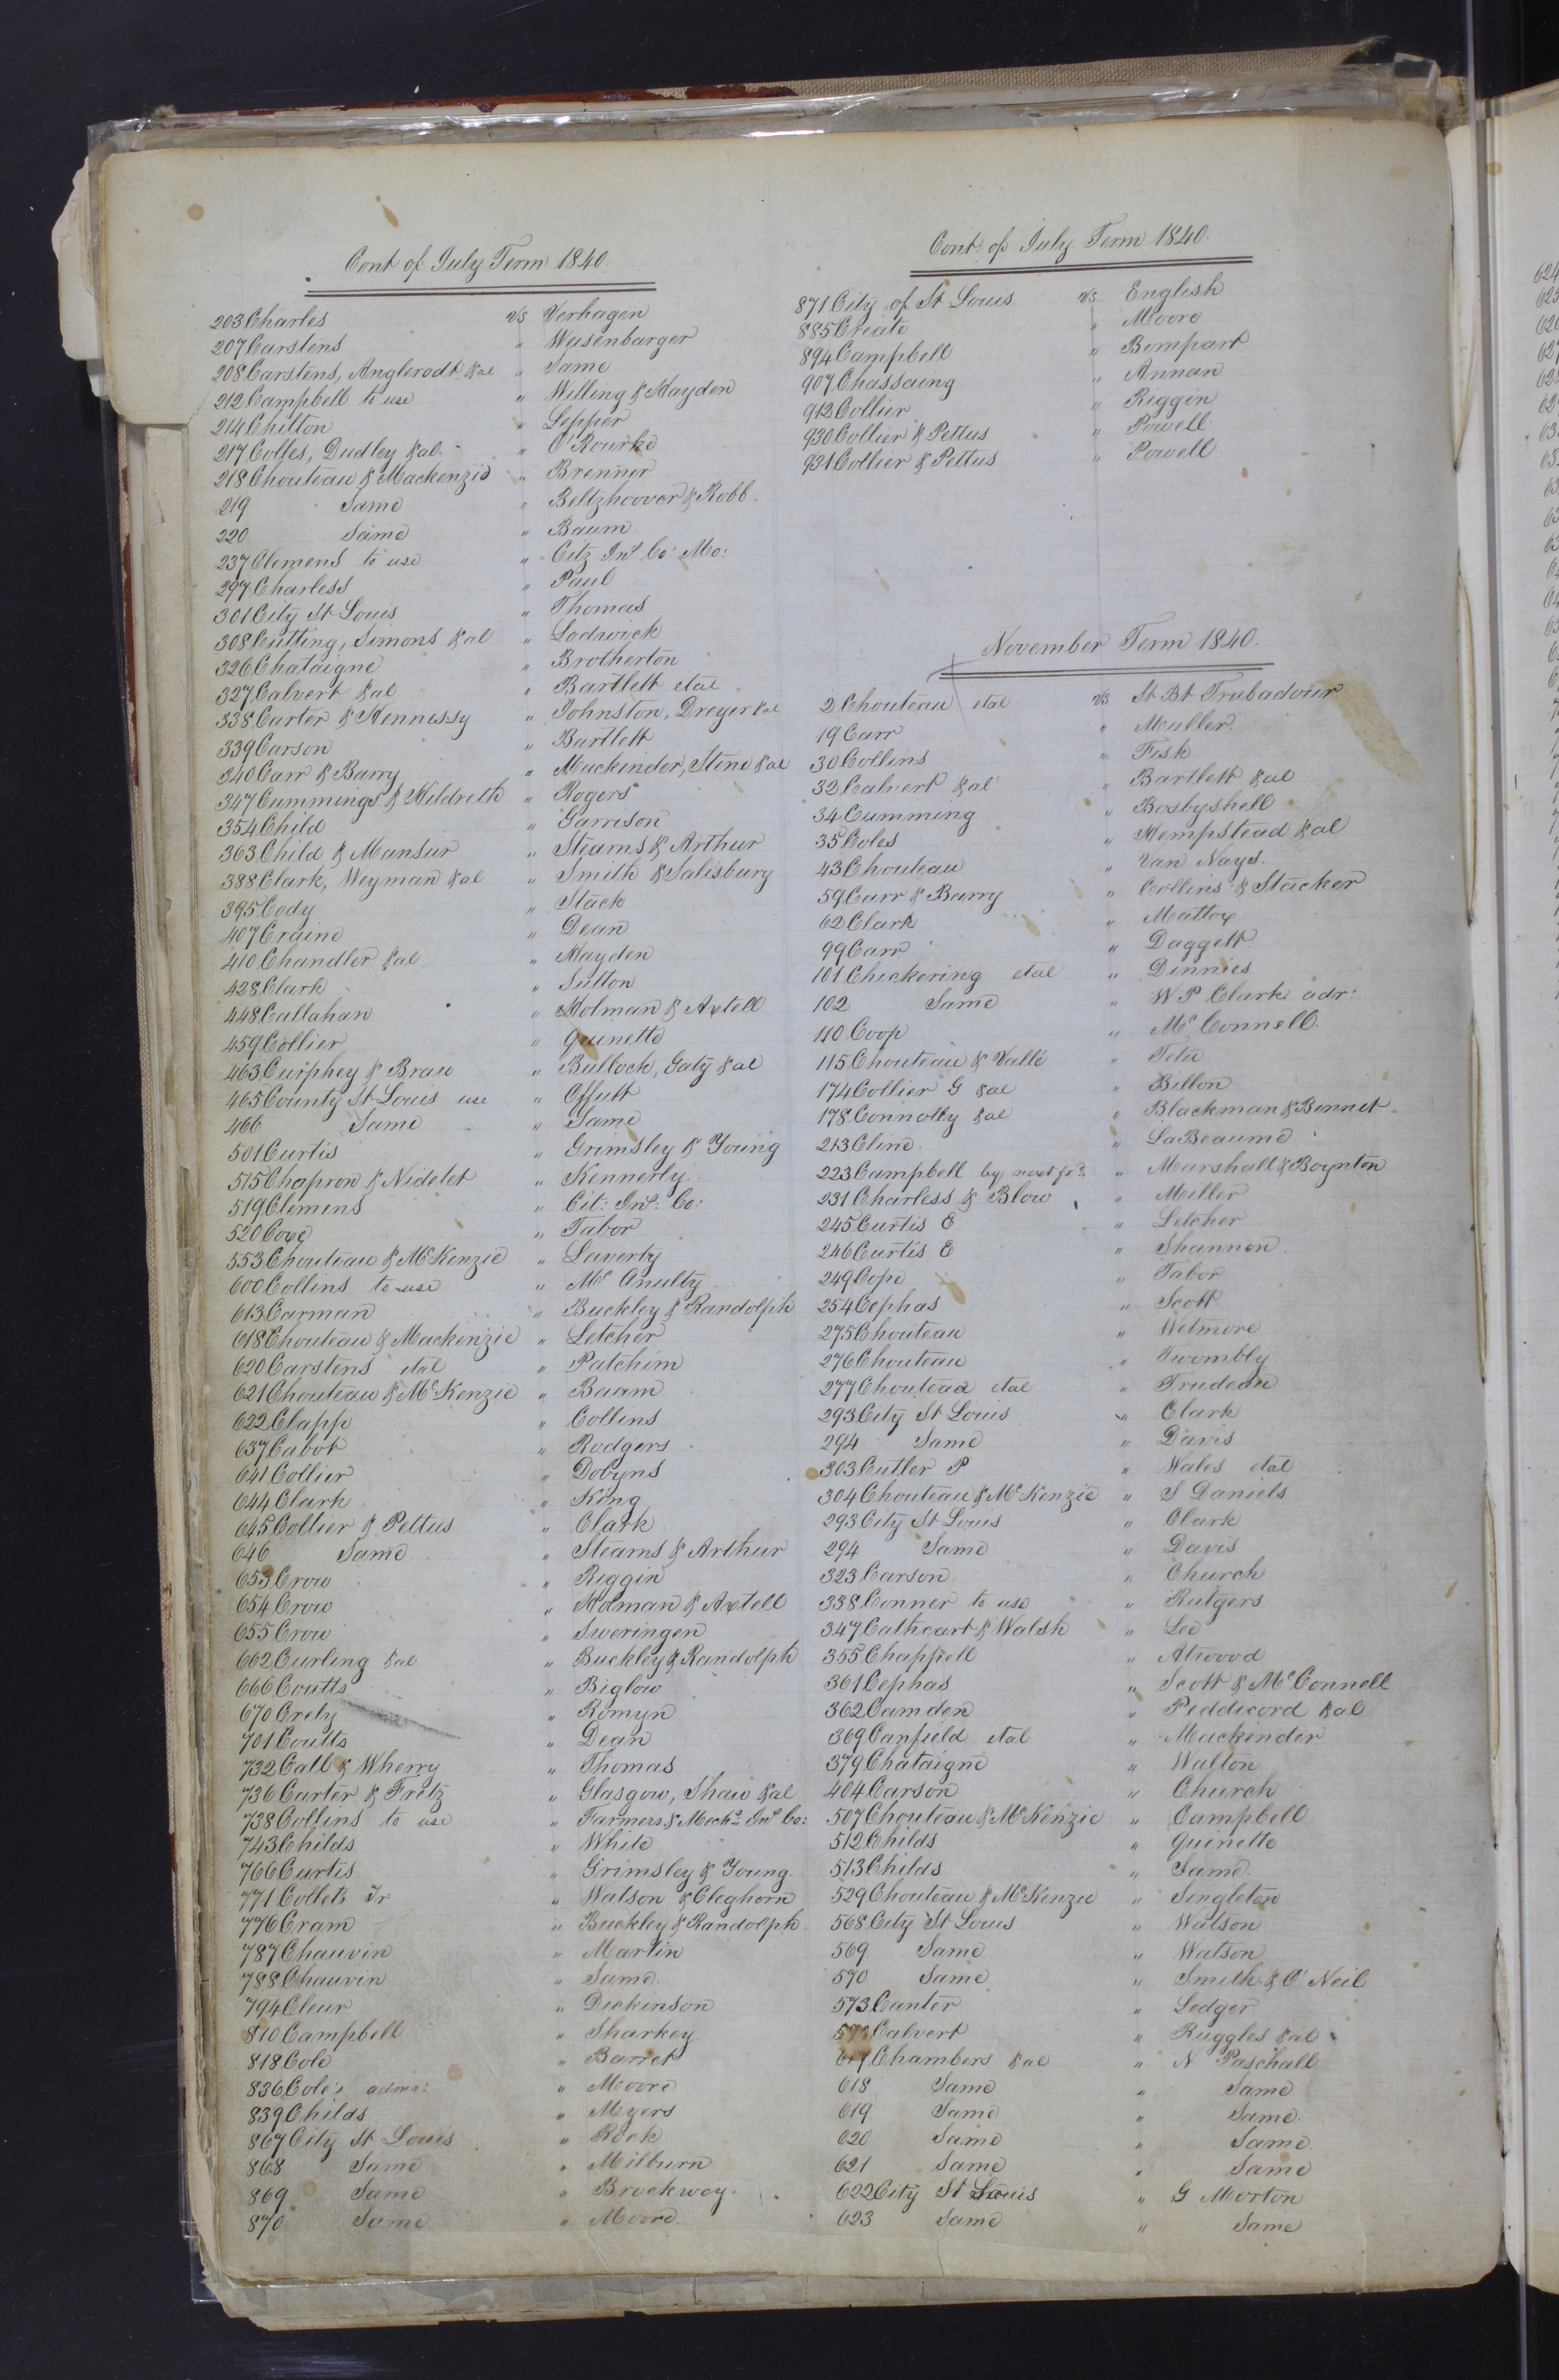 Cont of July Term 1840
203 Charles vs Verhagen
207 Carstens " Weisenbarger
208 Carstens, Anglerodt &al " Same
212 Campbell to use " Willing & Hayden
214 Chilton " Lepper
217 Colles, Dudley &al " O'Rourke
218 Chouteau & Mackenzie " Brenner
219 Same " Beltzhoover & Robb.
220 Same " Baum
237 Clemens to use " Citz Ins Co: Mo:
297 Charless " Paul
301 City St Louis " Thomas
308 Cutting, Simons &al " Lodwick
326 Chataigne " Brotherton
327 Calvert &al " Bartlett etal
338 Carter & Hennessy " Johnston, Dreyer &al
339 Carson " Bartlett
340 Carr & Barry " Mackinder, Stine &al
347 Cummings & Hildreth " Rogers
354 Child " Garrison
363 Child & Mansur " Stearns & Arthur
388 Clark, Weyman &al " Smith & Salisbury
395 Cody " Stack
407 Craine " Dean
410 Chandler &al " Hayden
428 Clark " Sutton
448 Callahan " Holman & Axtell
459 Collier " Guinette
463 Curphey & Braw " Bullock, Gaty &al
465 County St Louis use " Offutt
466 Same " Same
501 Curtis " Grimsley & Young
515 Chapron & Nidelet " Kennerly
519 Clemens " Cit: Ins: Co:
520 Coxe " Tabor
553 Chouteau & McKenzie " Laverty
600 Collins to use " Mc Anulty
613 Carman " Buckley & Randolph
618 Chouteau & Mackinzie " Letcher
620 Carstens etal " Patchim
621 Chouteau & McKenzie " Baum
622 Clapp " Collins
637 Cabot " Rodgers
641 Collier " Dobyns
644 Clark " King
645 Collier & Pettus " Clark
646 Same " Stearns & Arthur
653 Crow " Riggin
654 Crow " Holman & Axtell
655 Crow " Sweringen
662 Curling &al " Buckley & Randolph
666 Coutts " Biglow
670 Crely " Romyn
701 Coutts " Dean
732 Call & Wherry " Thomas
736 Carter & Fretz " Glasgow, Shaw &al
738 Collins to use " Farmers & Mechs Ins Co:
743 Childs " White
766 Curtis " Grimsley & Young.
771 Collet Jr " Watson & Cleghorn
776 Cram " Buckley & Randolph.
787 Chauvin " Martin
788 Chauvin " Same.
794 Cleur " Dickinson
810 Campbell " Sharkey
818 Cole " Barret
836 Cole's admr: " Moore
839 Childs " Myers
867 City St Louis " Rock
868 Same " Milburn
869 Same " Brockway.
870 Same " Moore.
Cont of July Term 1840.
871 City of St Louis vs English
885 Create " Moore
894 Campbell " Bompart
907 Chassaing " Annan
912 Collier " Riggin
930 Collier & Pettus " Powell
931 Collier & Pettus " Powell
November Term 1840.
2 Chouteau etal vs St Bt Trubadour
19 Carr " Muller
30 Collins " Fisk
32 Calvert &al " Bartlett &al
34 Cumming " Bosbyshell
35 Coles " Hempstead &al
43 Chouteau " Van Nays.
59 Carr & Barry " Collins & Stacker
62 Clark " Mattox
99 Carr " Daggett
101 Chickering etal " Dinnies
102 Same " W P Clark adr:
110 Coop " Mc Connell.
115 Chouteau & Vallé " Tetu
174 Collier G &al " Billon
178 Connolly &al " Blackman & Bennet
213 Cline. " LaBeaume
223 Campbell by next fr: " Marshall & Boynton
231 Charless & Blow " Miller
245 Curtis E " Letcher
246 Curtis E " Shannon
249 Cope " Tabor
254 Cephas " Scott
275 Chouteau " Wetmore
276 Chouteau " Twombly
277 Chouteau etal " Trudeau
293 City St Louis " Clark
294 Same " Davis
303 Cutler P " Wales etal
304 Chouteau & McKenzie " S Daniels
293 City St Louis " Clark
294 Same " Davis
323 Carson " Church
338 Conner to use " Rutgers
347 Cathcart & Walsh " Lee
355 Chappell " Atwood
361 Cephas " Scott & McConnell
362 Camden " Peddicord &al
369 Canfield etal " Mackinder
379 Chataigne " Walton
404 Carson " Church
507 Chouteau & McKenzie " Campbell
512 Childs " Guinette
513 Childs " Same.
529 Chouteau & McKenzie " Singleton
568 City St Louis " Watson
569 Same " Watson
570 Same " Smith & O'Neil
573 Canter " Ledger
Calvert " Ruggles &al
617 Chambers &al " N Paschall
618 Same " Same
619 Same " Same.
620 Same " Same.
621 Same " Same
622 City St Louis " G Morton
623 Same " Same